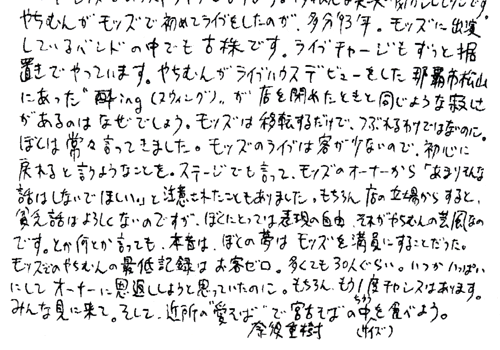 やちむんがモッズで初めてライブをしたのが、多分93年。モッズに出演
しているバンドの中でも古株です。ライブチャージもずっと据
置きでやっています。やちむんがライブハウスデビューをした那覇市松山
にあった"酔ing(スウィング)"が店を閉めたときと同じような寂しさ
があるのはなぜでしょう。モッズは移転するだけで、つぶれるわけではないのに。
ぼくは常々言ってきました。モッズのライブは客が少ないので、初心に
戻れると言うようなことを。ステージでも言って、モッズのオーナーから"あまりそんな
話はしないでほしい。"と注意されたこともありました。もちろん店の立場からすると、
貧乏話はよろしくないのですが、ぼくにとっては表現の自由、それがやちむんの芸風なの
です。とか何とか言っても、本音は、ぼくの夢はモッズを満員にすることだった。
モッズでのやちむんの最低記録はお客ゼロ。多くても30人ぐらい。いつかいっぱい
にしてオーナーに恩返ししようと思っていたのに。もちろん、もう1度チャンスはあります。
みんな見に来て。そして、近所の"愛そば"で宮古そばの中を食べよう。
奈須重樹 (サイズ)